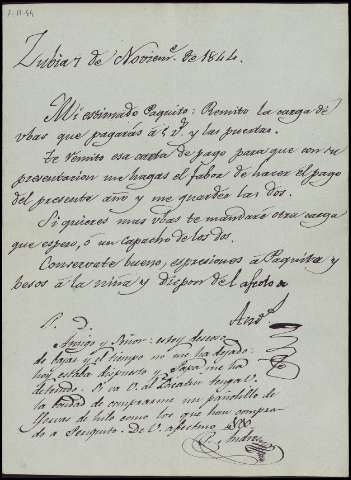 7-11-44
Zubia 7 de Noviem.e de 1844.
Mi estimado Paquito: Remito la carga de
ubas que pagarás á 5 d.s y las puertas.
Te remito esa carta de pago para que con tu
presentacion me hagas el fabor de hacer el pago
del presente año y me guardes las dos.
Si quieres mas ubas te mandaré otra carga
que espero, ó un capacho de las dos.
Conservate bueno, espresiones á Paquita y
besos á la niña y dispon del afecto a
P. D.
Amigo y Señor: estoy deseoso
de bajar y el tiempo no me ha dejado:
hoy estaba dispuesto y Papá me ha
detenido. Si va V. al Zacatin tenga V.
la bondad de comprarme un pañolillo de
yervas de hilo como los que han compra-
do a Periquito. De V. afectmo
Andres